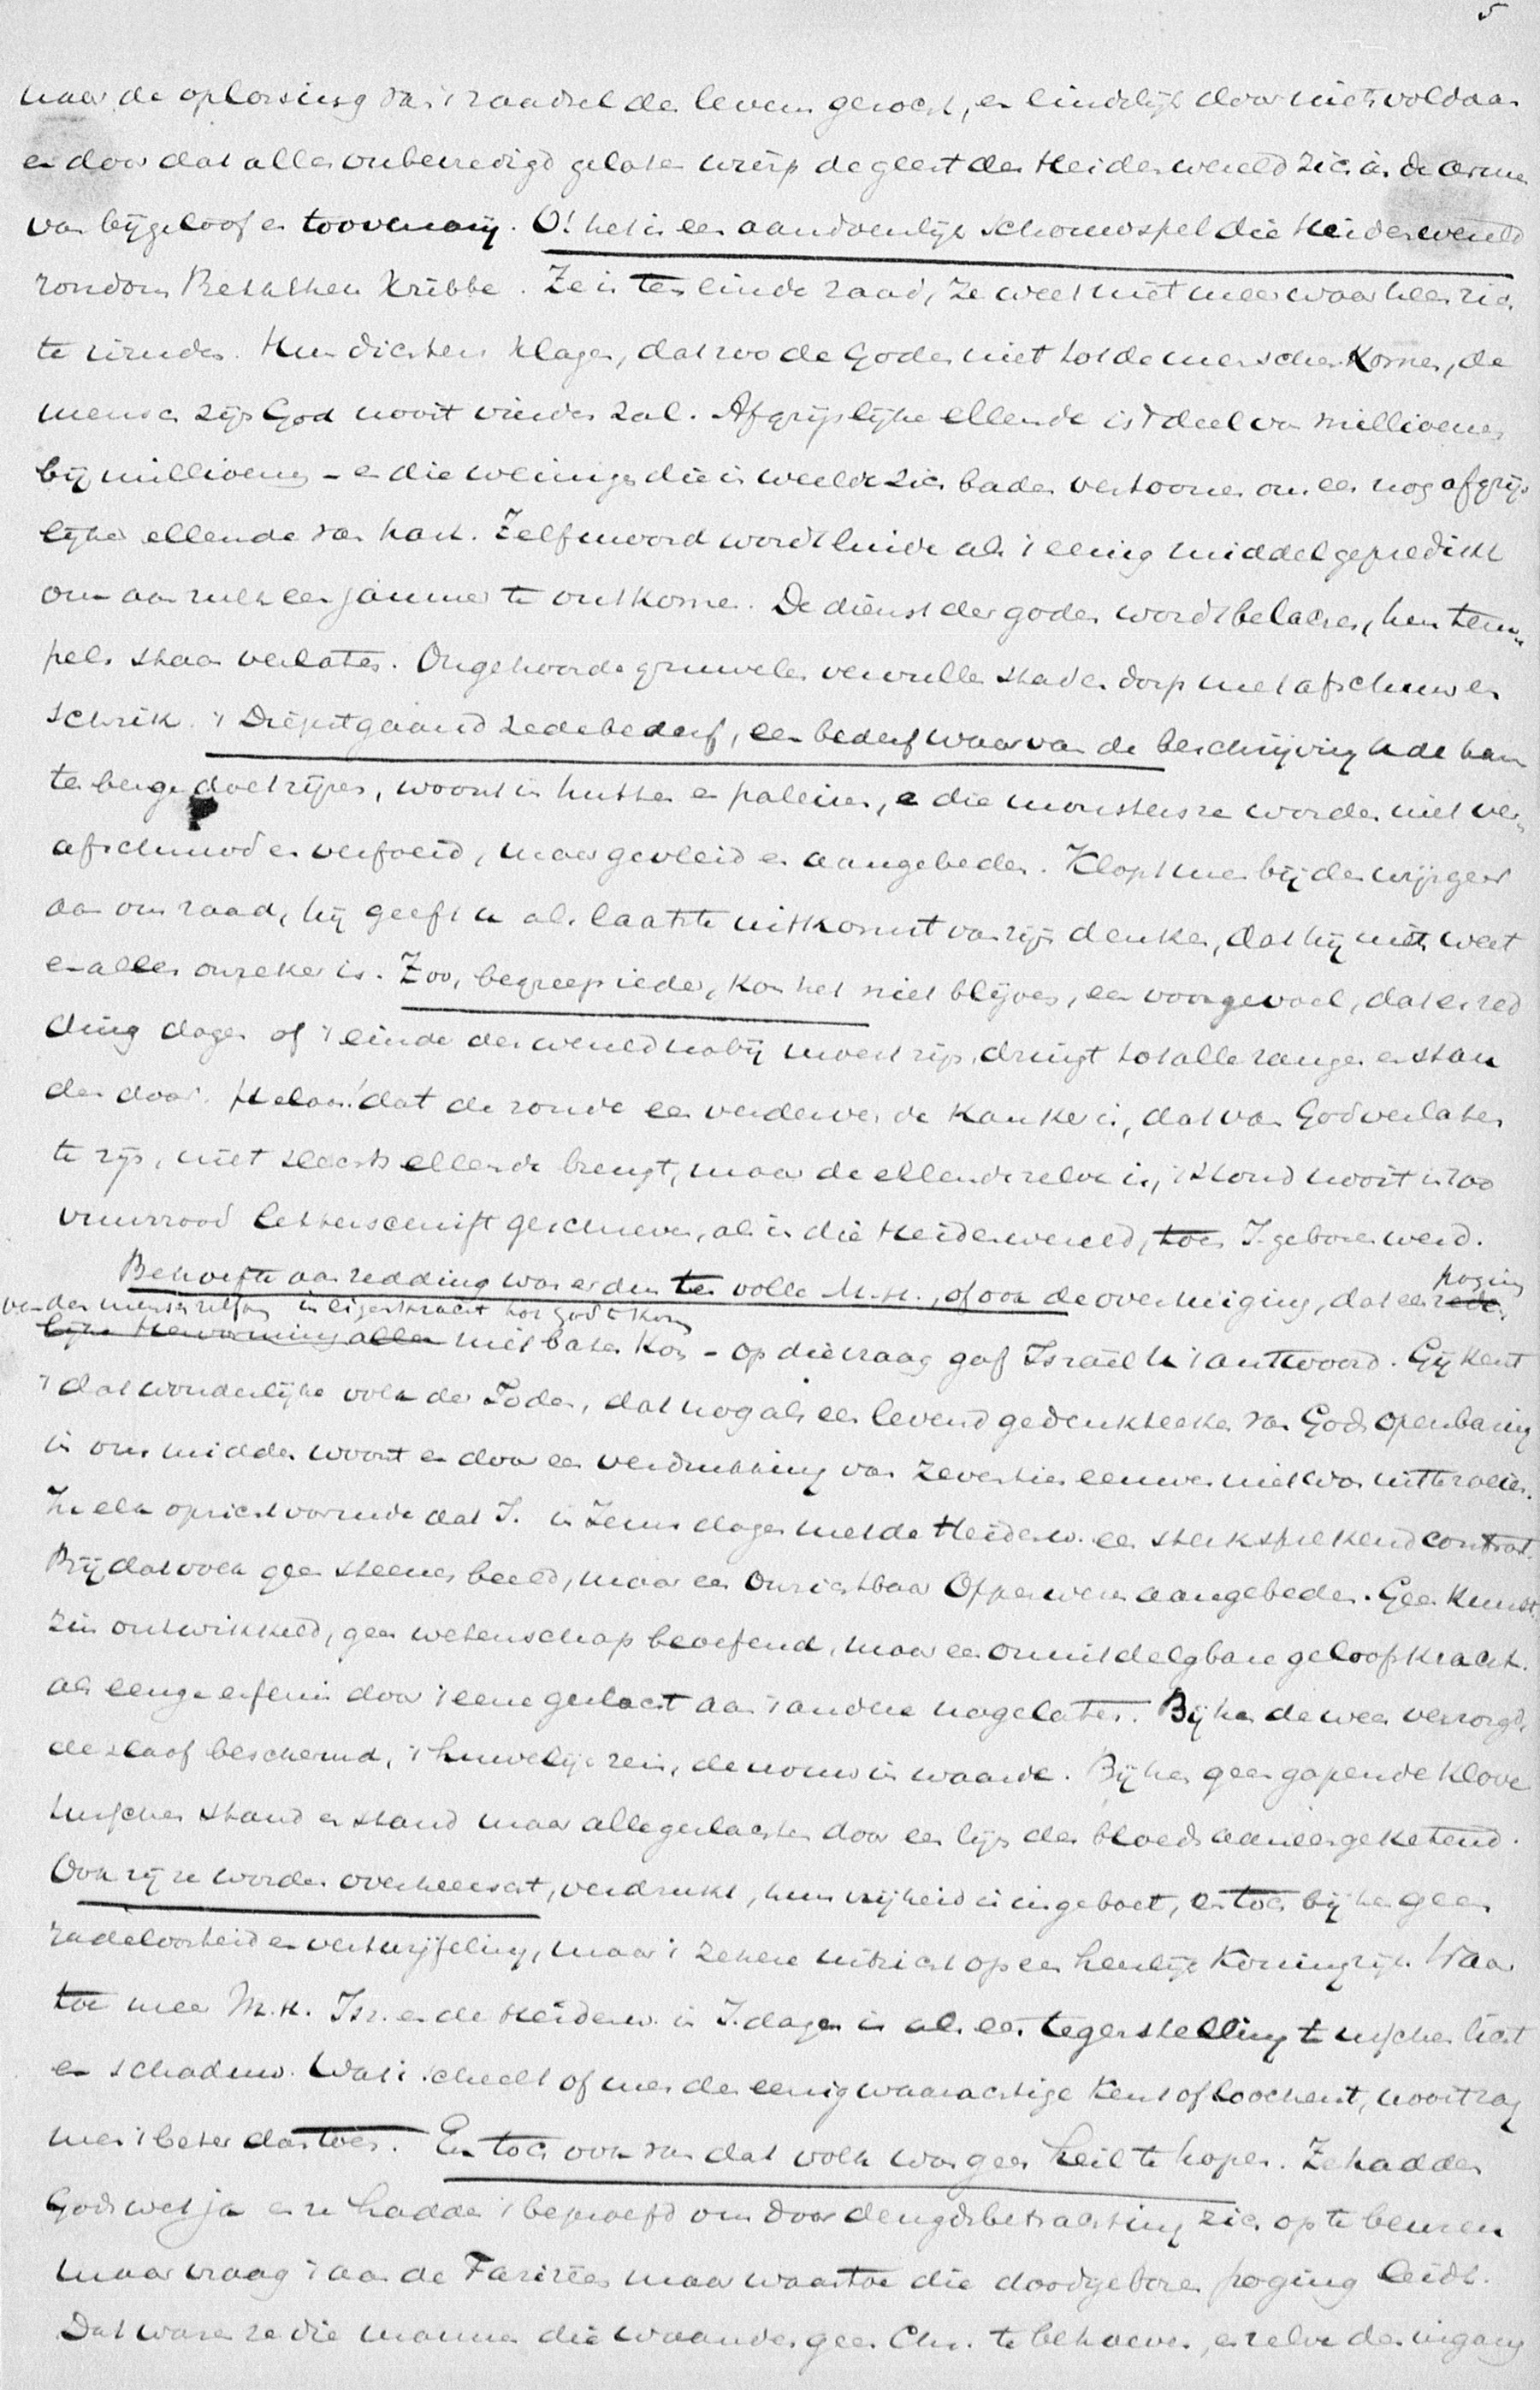 5
naar de oplossing van 't raadsel des levens gezocht, en eindelijk door niets voldaan
en door dat alles onbevredigd gelaten wierp de geest der Heidenwereld zich in de armen
van bijgeloof en toovenarij. O! het is een aandoenlijk schouwspel die Heidenwereld
rondom Bethlehem Kribbe. Ze is ten einde raad, ze weet niet meer waar heen zich
te wenden. Hun dichters klagen, dat zoo de Goden niet tot de menschen komen, de
mensch zijn God nooit vinden zal. Afgrijslijke ellende is 't deel van millioenen
bij millioenen – en die weinigen die in weelde zich baden vertoonen ons een nog afgrijs
lijker ellende van hart. Zelfmoord wordt luide als 't eenig middel gepredikt
om aan zulk een jammer te ontkomen. De dienst der goden wordt belachen, hun tem„
pels staan verlaten. Ongehoorde gruwelen vervullen stad en dorp met afschuw en
schrik. 't Diepstgaand zedebederf, een bederf waarvan de beschrijving u de haren
te berge doet rijzen, woont in hutten en paleizen, en die monsters ze worden niet ver„
afschuwd en verfoeid, maar gevleid en aangebeden. Klopt men bij den wijsgeer
aan om raad, hij geeft u als laatste uitkomst van zijn denken, dat hij niets weet
en alles onzeker is. Zoo, begreep ieder, kon het niet blijven, een voorgevoel, dat er red
ding dagen of 't einde der wereld nabij moest zijn, dringt tot alle rangen en stan
den door. Helaas! dat de zonde een verdervende kanker is, dat van God verlaten
te zijn, niet slechts ellende brengt, maar de ellende zelve is, 't stond nooit in zoo
vuurrood letterschrift geschreven, als in die Heidenwereld, toen J. geboren werd.
Behoefte aan redding was er dus ten volle M.H., of ook de overtuiging, dat een rede poging
van den mensch zelf om in eigen kracht tot God te komen
lijke Hervorming alleen niet baten kon – op die vraag gaf Israël u 't antwoord. Gij kent
't dat wonderlijke volk der Joden, dat nog als een levend gedenkteeken van Gods openbaring
in ons midden woont en door een verdrukking van zeventien eeuwen niet was uitteroeien.
In elk opzicht vormde dat I. in Jezus dagen met de Heidenw. een sterksprekend contrast
Bij dat volk geen steenen beeld, maar een Onzichtbaar Opperwezen aangebeden. Geen kunst
zin ontwikkeld, geen wetenschap beoefend, maar een onuitdelgbare geloofskracht
als eenige erfenis door 't eene geslacht aan 't andere nagelaten. Bij hen de wees verzorgd,
de slaaf beschermd, 't huwelijk rein, de vrouw in waarde. Bij hen geen gapende klove
tusschen stand en stand maar alle geslachten door een lijn des bloeds aaneengeketend.
Ook zij ze worden overheerscht, verdrukt, hun vrijheid is ingeboet, en toch bij hen geen
radeloosheid en vertwijfeling, maar 't zekere uitzicht op een heerlijk Koningrijk. Waar
toe meer M.H. Isr. en de Heidenw. in J. dagen is als een tegenstelling tusschen licht
en schaduw. Wat 't scheelt of men den eenig waarachtige kent of loochent, nooit zag
men 't beter dan toen. En toch ook van dat volk was geen heil te hopen. Ze hadden
Gods wet ja en ze hadden 't beproefd om door deugdsbetrachting zich op te beuren
maar vraag 't aan de Farizeën maar waartoe die doodgeboren poging leidt.
Dat waren ze die mannen die waanden geen Chr. te behoeven, en zelve den ingang